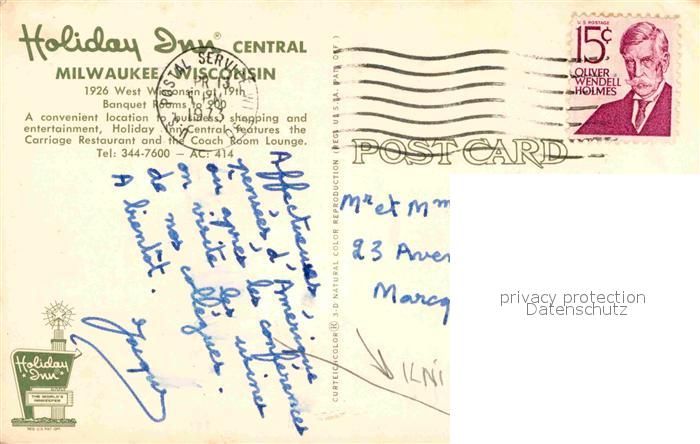 Holiday Inn® CENTRAL
MILWAUKEE, WISCONSIN
1926 West Wisconsin at 19th
Banquet Rooms to 200
A convenient location to business, shopping and
entertainment, Holiday Inn Central features the
Carriage Restaurant and the Coach Room Lounge.
Tel: 344-7600 — AC: 414
U.S. POSTAL SERVICE
U.S. POSTAGE
15¢
OLIVER
WENDELL
HOLMES
POST CARD
Affectueuses
pensées d'Amérique
où après les conférences
on visite les usines
de nos collègues.
A bientôt.
Jacques
CURTEICHCOLOR® 3-D NATURAL COLOR REPRODUCTION (REG. U.S.A. PAT. OFF.)
Mr et Mm
23 Aven
Marcq
privacy protection
Datenschutz
Holiday
Inn
THE WORLD'S
INNKEEPER
REG. U.S. PAT. OFF.